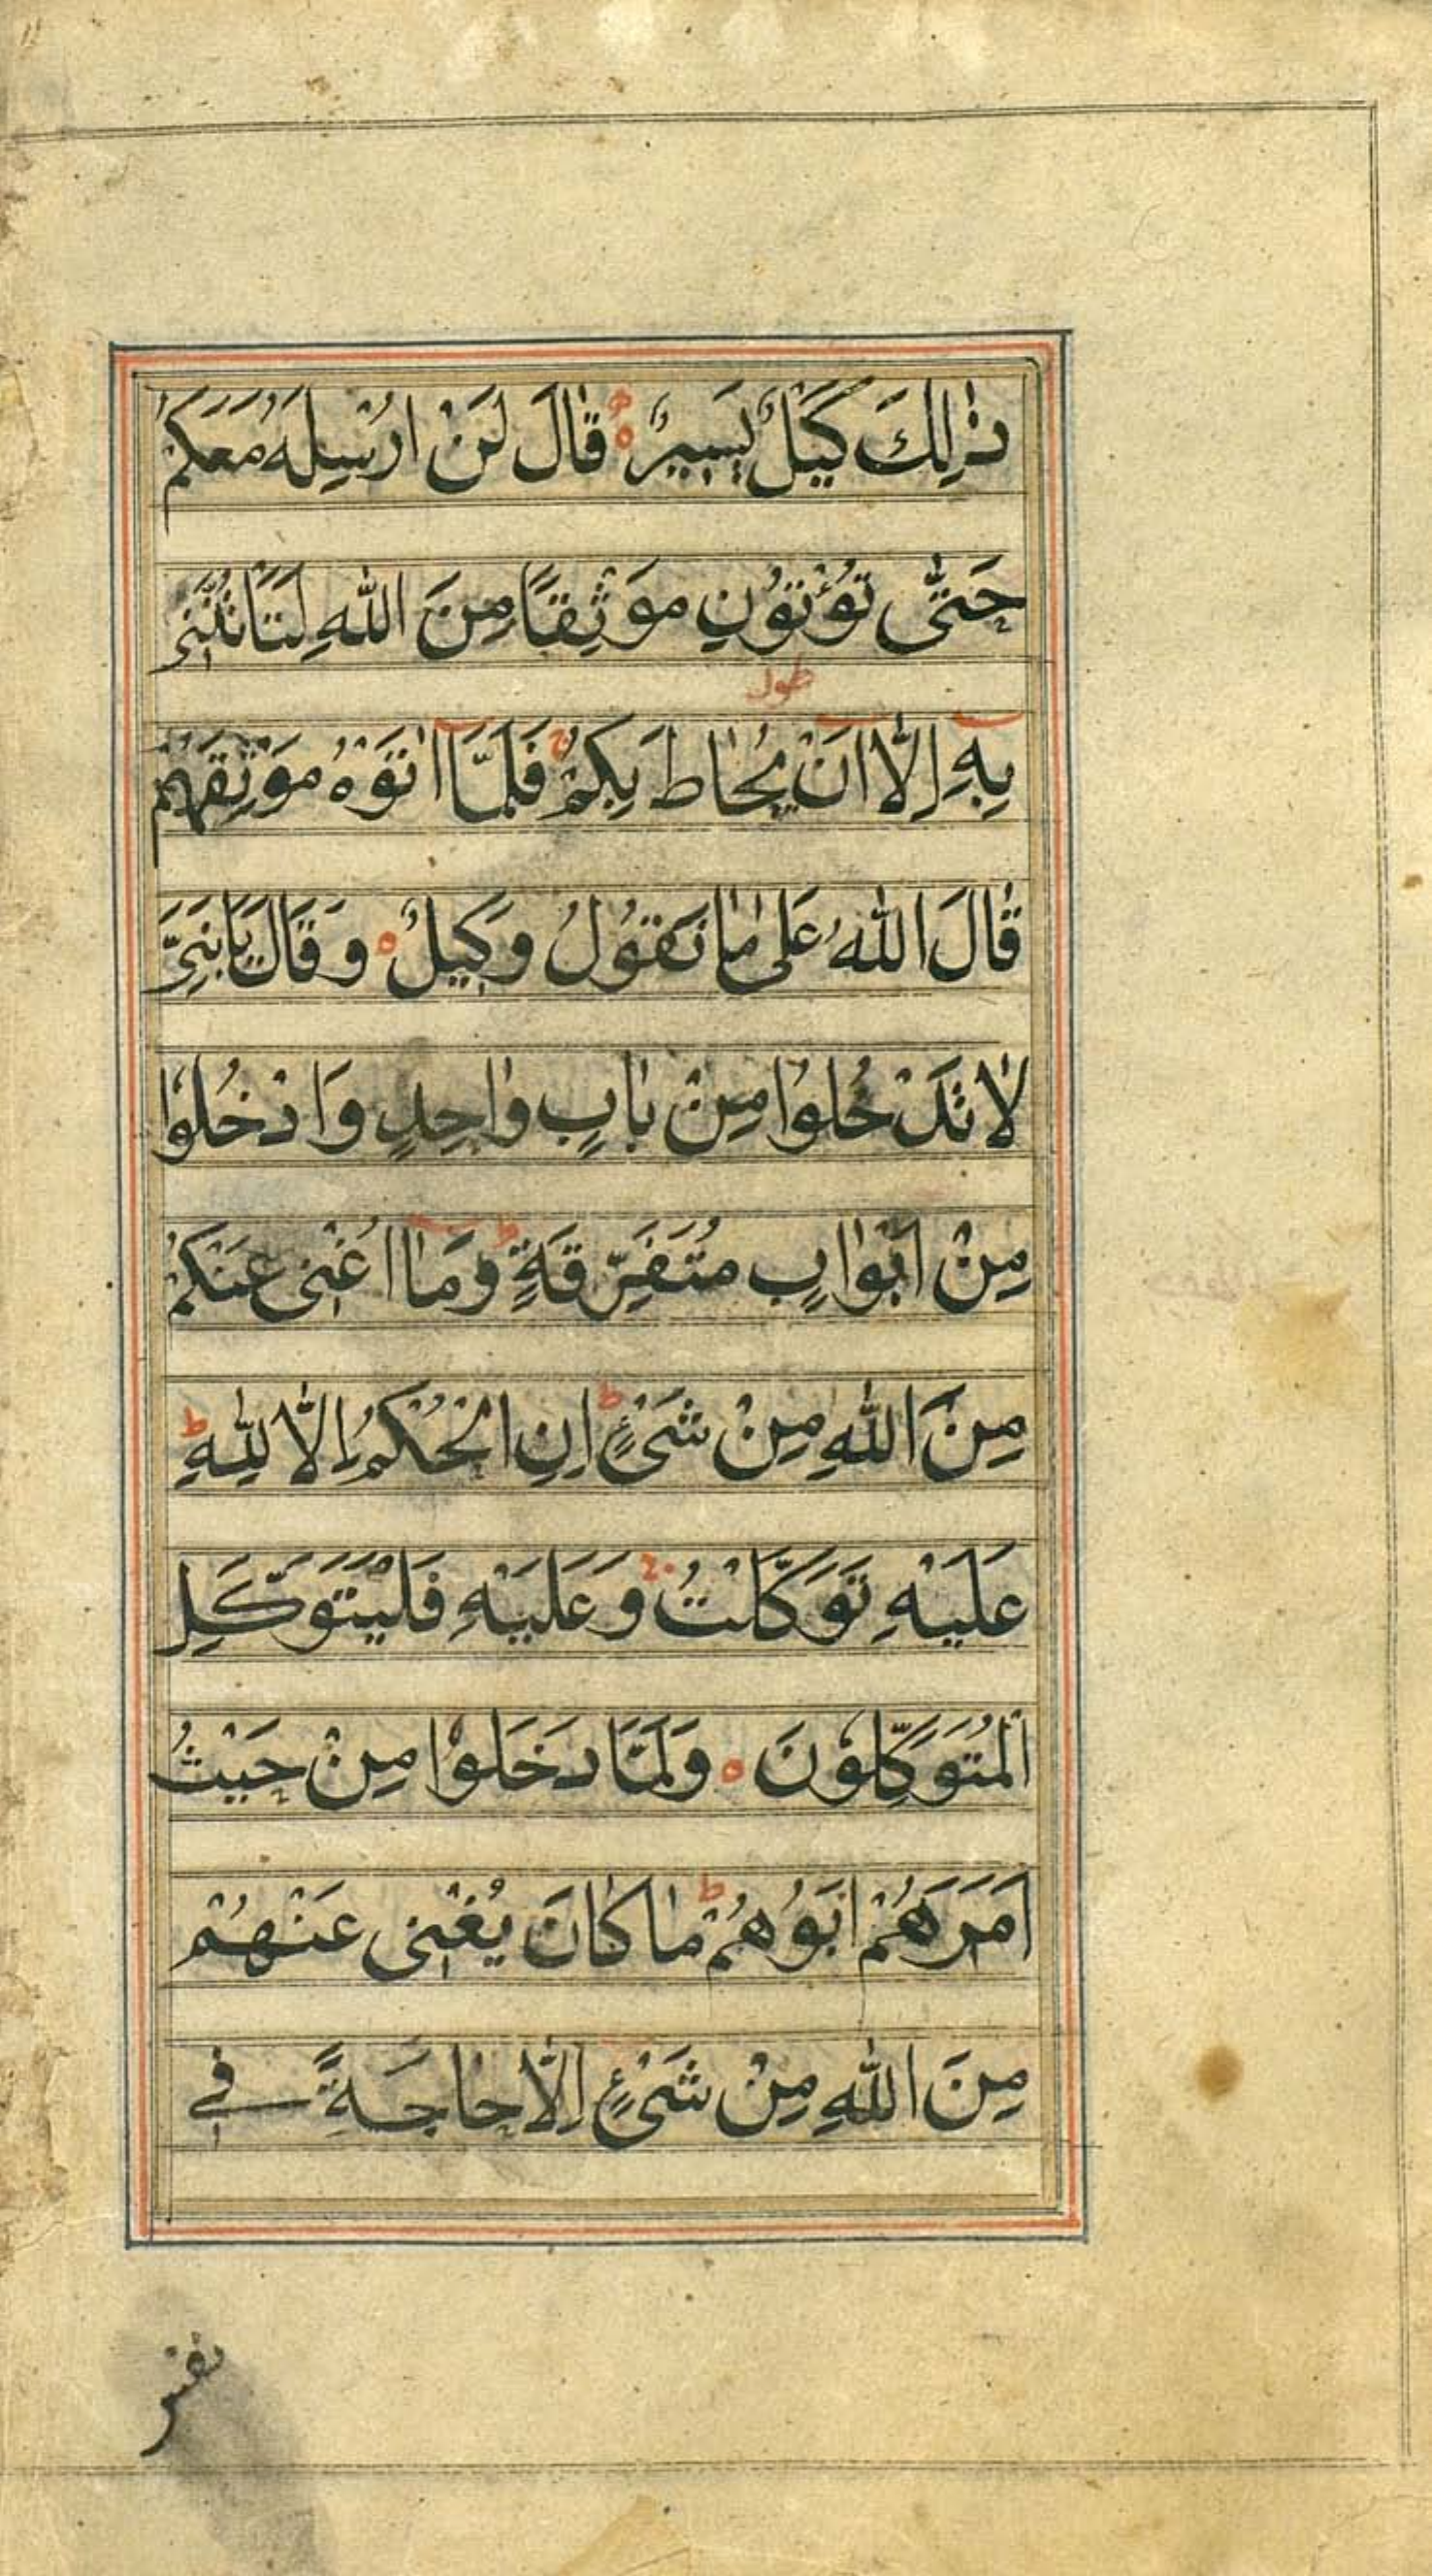 ذٰلِكَ كَيْلٌ يَسِيرٌ ه قٰالَ لَنْ اُرْسِلَهُ مَعَكُمْ
حَتّٰى تُؤْتُوْنِ مَوْثِقًا مِنَ اللّٰهِ لَتَاْتُنَّنِى
طول
بِهِ اِلّٰا اَنْ يُحٰاطَ بِكُمْ ج فَلَمَّا اٰتَوْهُ مَوْثِقَهُمْ
قٰالَ اللّٰهُ عَلىٰ مٰا نَقُوْلُ وَكِيلٌ ه وَقَالَ يَا بَنِىَّ
لٰا تَدْخُلُوا مِنْ بٰابٍ وٰاحِدٍ وَادْخُلُوا
مِنْ اَبْوٰابٍ مُتَفَرِّقَةٍ ط وَمٰا اُغْنِى عَنْكُمْ
مِنَ اللّٰهِ مِنْ شَىْءٍ ط اِنِ الْحُكْمُ اِلّٰا لِلّٰهِ ط
عَلَيْهِ تَوَكَّلْتُ ج وَعَلَيْهِ فَلْيَتَوَكَّلِ
الْمُتَوَكِّلُوْنَ ه وَلَمَّا دَخَلُوْا مِنْ حَيْثُ
اَمَرَهُمْ اَبُوْهُمْ ط مٰا كٰانَ يُغْنِى عَنْهُمْ
مِنَ اللّٰهِ مِنْ شَىْءٍ اِلّٰا حٰاجَةً فِى
نفس